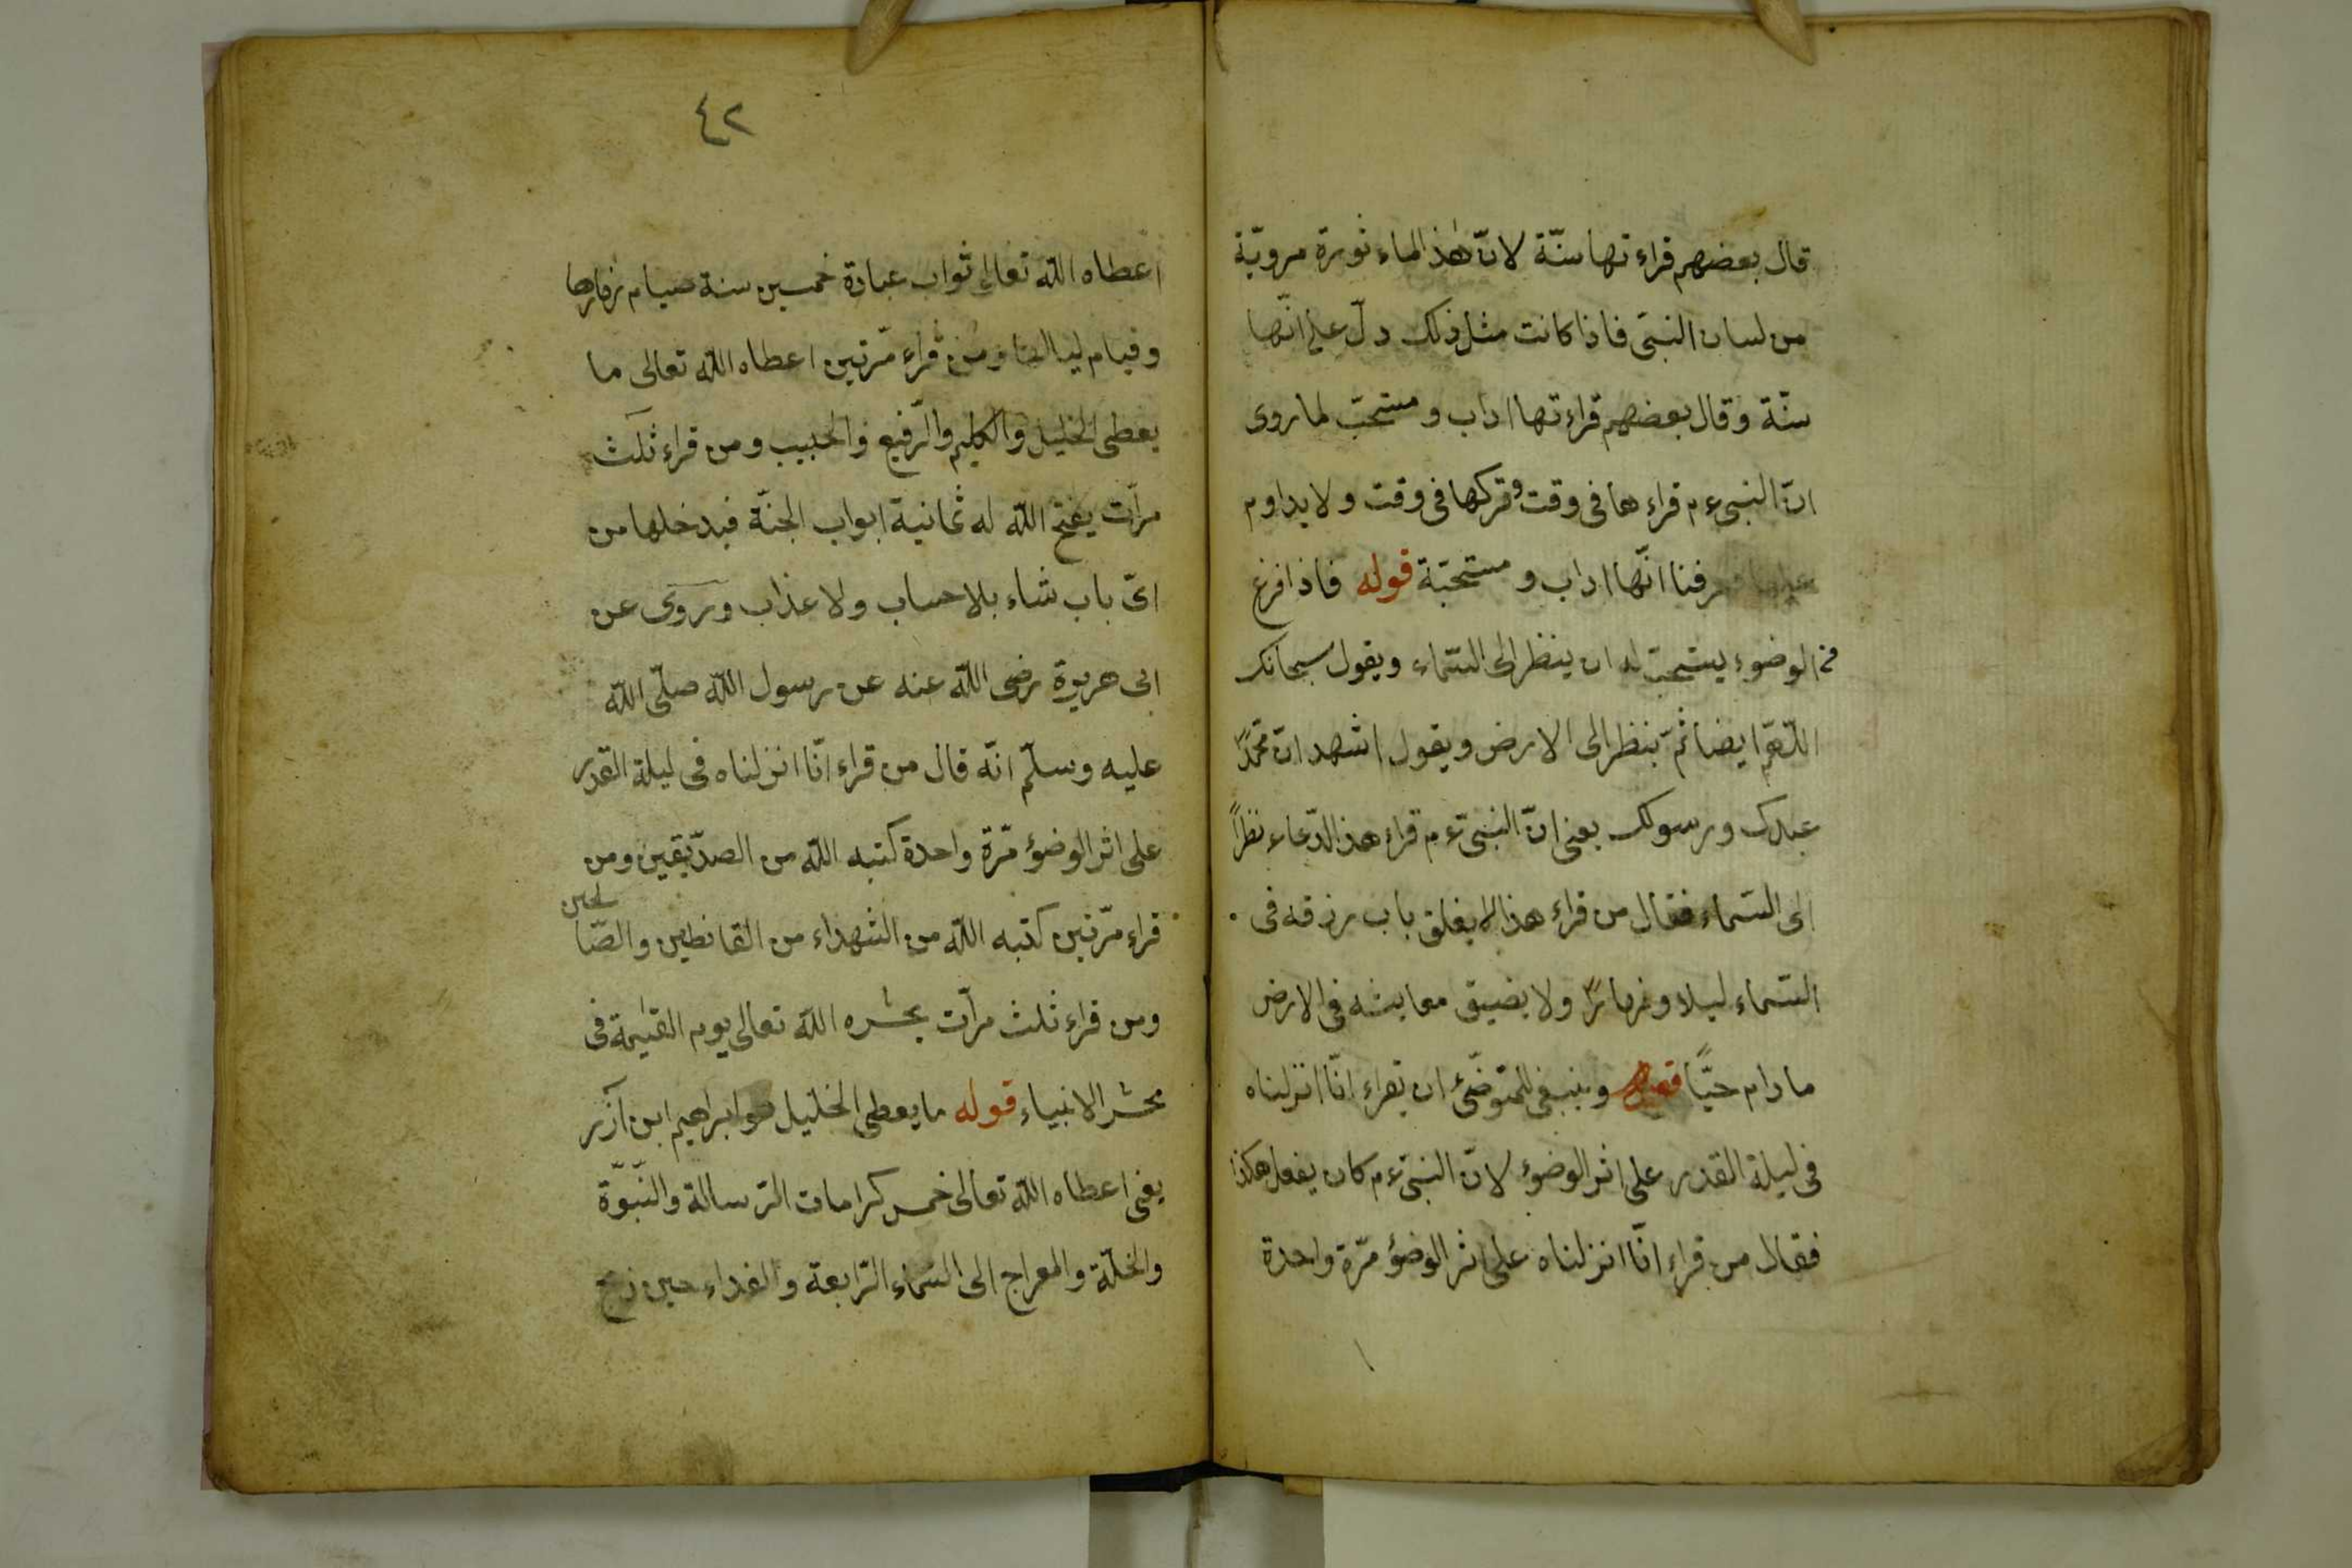 قال بعضهم قراءتها سنّة لانّ هٰذ الماء ثورة مرويّة
من لسان النبىّ فاذا كانت مثل ذلك دلّ على انّها
سنّة وقال بعضهم قراءتها اداب و مستحبّ لما روى
انّ النبى ءم قراءها فى وقت وتركها فى وقت ولا يداوم
عليها فعرفنا انّها اداب و مستحبّة قوله فاذا فرغ
من الوضوء يستحبّ له ان ينظر الى السّماء ويقول سبحانك
اللّهمّ ايضا ثمّ ينظر الى الارض ويقول اشهد انّ محمّدًا
عبدك ورسولك يعنى انّ النبىّ ءم قراء هذ الدّعاء نظرًا
الى السّماء فقال من قراء هذا لا يغلق باب رزقه فى
السّماء ليلا ونهارًا ولا يضيق معايشه فى الارض
ما دام حيًّا قوله وينبغى للمتوضّئ ان يقراء انّا انزلناه
فى ليلة القدر على اثر الوضوء لانّ النبىّ ءم كان يفعل هكذا
فقال من قراء انّا انزلناه على اثر الوضؤ مرّة واحدة
٤٢
اعطاه اللّه تعالى ثواب عبادة خمسين سنة صيام نهارها
وقيام لياليها ومن قراء مّرتين اعطاه اللّه تعالى ما
يعطى الخليل والكليم والرّفيع والحبيب ومن قراء ثلٰث
مرّات يفتح اللّه له ثمانية ابواب الجنّة فيدخلها من
اىّ باب شاء بلا حساب ولا عذاب وروى عن
ابى هريرة رضى اللّه عنه عن رسول اللّه صلّى اللّه
عليه وسلّم انّه قال من قراء انّا انزلناه فى ليلة القدر
على اثر الوضؤ مّرة واحدة كتبه اللّه من الصدّيقين ومن
قراء مّرتين كتبه اللّه من الشهداء من القانطين والصّالحين
ومن قراء ثلث مرّات يحشره اللّه تعالى يوم القيٰمة فى
محشر الانبياء قوله ما يعطى الخليل هو ابراهيم ابن آزر
يعنى اعطاه اللّه تعالى خمس كرامات الرّسالة والنّبوّة
والخلّة والمعراج الى السّماء الرّابعة والفداء حين ذبح